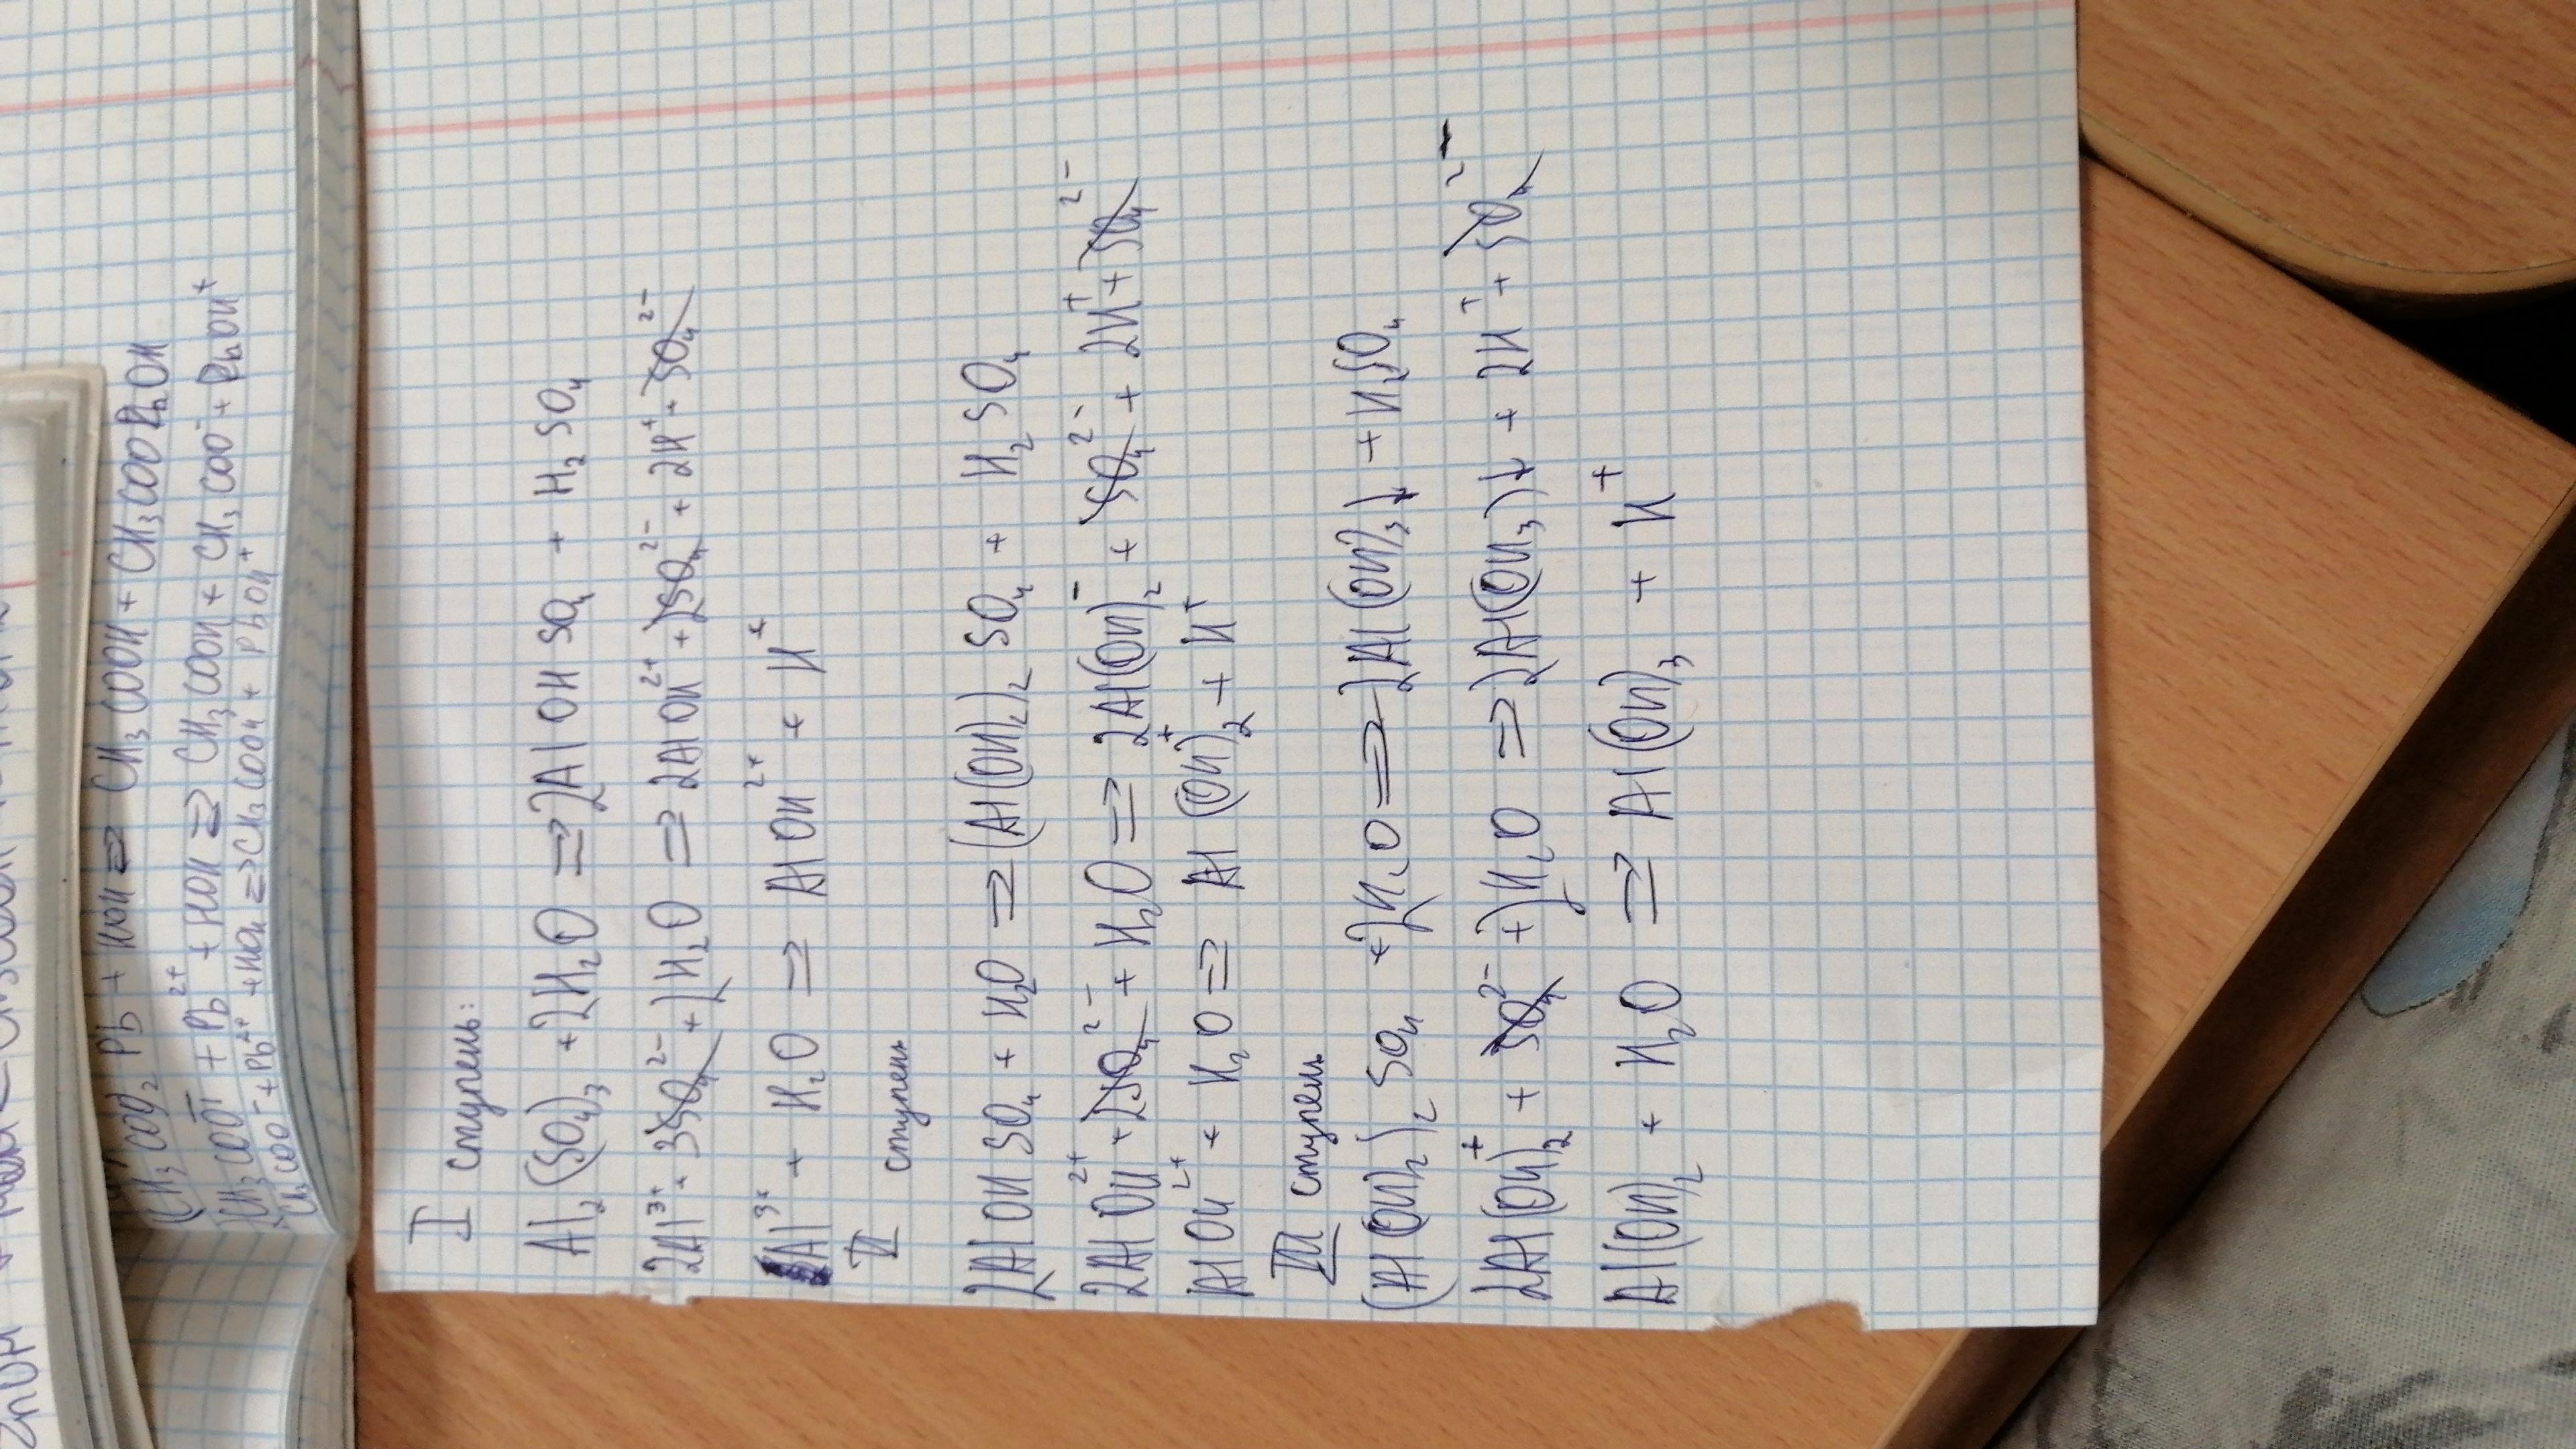 (CH₃COO)₂Pb + HOH ⇄ CH₃COOH + CH₃COOPbOH
CH₃COO⁻ + Pb²⁺ + HOH ⇄ CH₃COOH + CH₃COO⁻ + PbOH⁺
CH₃COO⁻ + Pb²⁺ + HOH ⇄ CH₃COOH + PbOH⁺
I ступень:
Al₂(SO₄)₃ + 2H₂O ⇄ 2AlOHSO₄ + H₂SO₄
2Al³⁺ + 3SO₄²⁻ + 2H₂O ⇄ 2AlOH²⁺ + 2SO₄²⁻ + 2H⁺ + SO₄²⁻
Al³⁺ + H₂O ⇄ AlOH²⁺ + H⁺
II ступень
2AlOHSO₄ + H₂O ⇄ (Al(OH)₂)₂SO₄ + H₂SO₄
2AlOH²⁺ + 2SO₄²⁻ + H₂O ⇄ 2Al(OH)₂⁻ + SO₄²⁻ + 2H⁺ + SO₄²⁻
AlOH²⁺ + H₂O ⇄ Al(OH)₂⁺ + H⁺
III ступень
(Al(OH)₂)₂SO₄ + 2H₂O ⇄ 2Al(OH)₃↓ + H₂SO₄
2Al(OH)₂⁺ + SO₄²⁻ + 2H₂O ⇄ 2Al(OH₃)↓ + 2H⁺ + SO₄²⁻
Al(OH)₂ + H₂O ⇄ Al(OH)₃ + H⁺